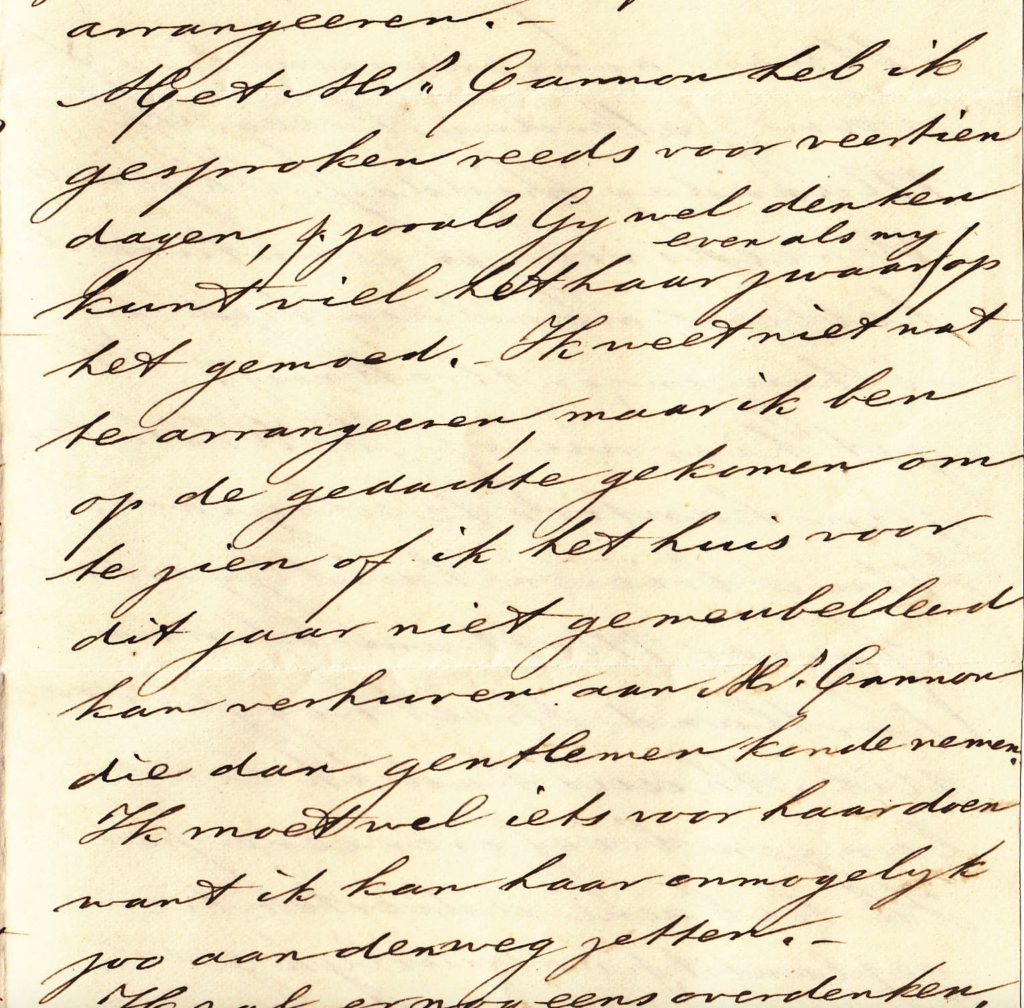 arrangeeren. –
Met Mrs. Cannon heb ik
gesproken reeds voor veertien
dagen, zooals Gy wel denken
even als my
kunt viel het haar zwaar op
het gemoed. – Ik weet niet wat
te arrangeeren, maar ik ben
op de gedachte gekomen om
te zien of ik het huis voor
dit jaar niet gemeubelleerd
kan verhuren aan Mrs. Cannon
die dan gentlemen konde nemen.
Ik moet wel iets voor haar doen
want ik kan haar onmogelyk
zoo aan den weg zetten. –
Ik zal er nog eens overdenken